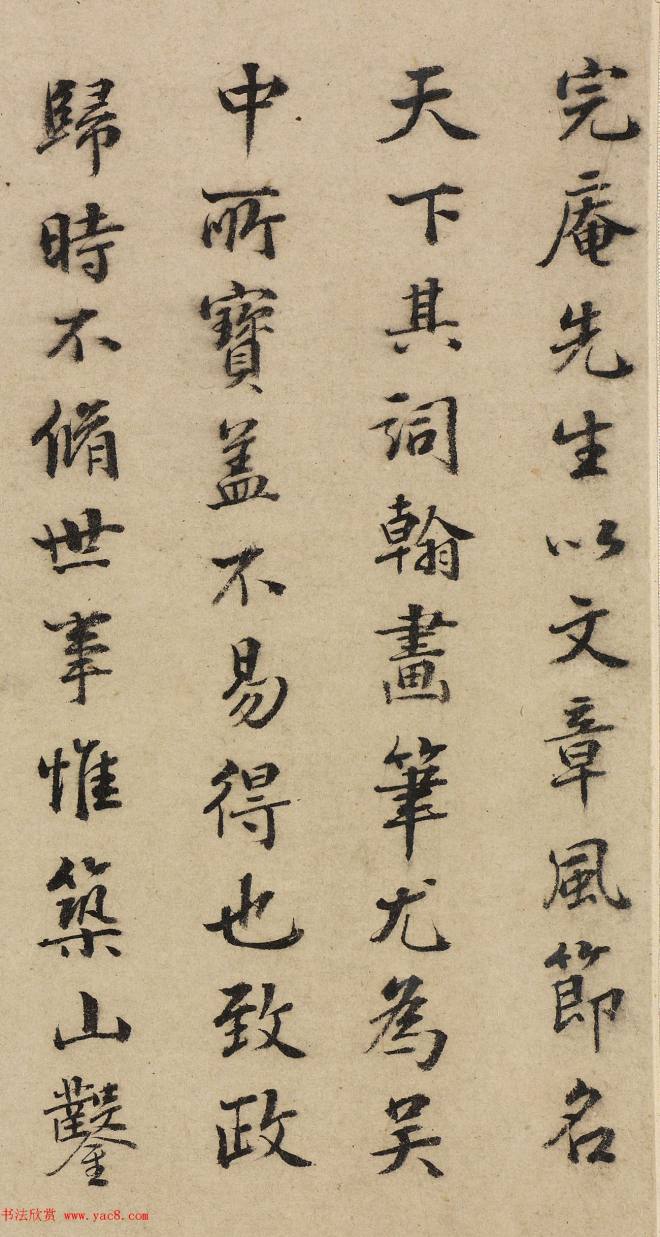 完庵先生以文章風節名
天下其詞翰畫筆尤為吴
中所寶蓋不易得也致政
歸時不脩世事惟築山鑿
书法欣赏 www.yac8.com